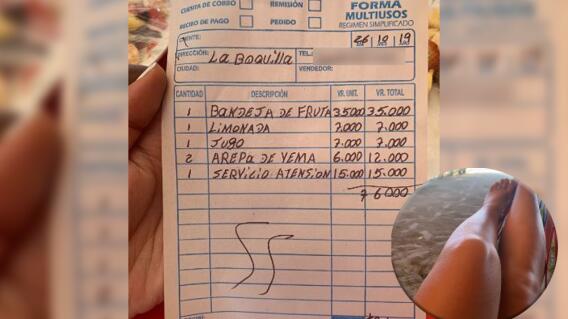 CUENTA DE COBRO REMISIÓN FORMA
RECIBO DE PAGO PEDIDO MULTIUSOS
RÉGIMEN SIMPLIFICADO
26 10 19
DIRECCIÓN: La Boquilla TEL.:
CIUDAD: VENDEDOR:
CANTIDAD DESCRIPCIÓN VR. UNIT. VR. TOTAL
1 BANDEJA DE FRUTA 35000 35.000
1 LIMONADA 7.000 7.000
1 JUGO 7.000 7.000
2 AREPA DE YEMA 6.000 12.000
1 SERVICIO ATENSION 15.000 15.000
76000